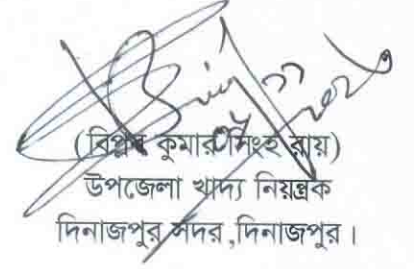 (বিপ্লব কুমার সিংহ রায়)
উপজেলা খাদ্য নিয়ন্ত্রক
দিনাজপুর সদর ,দিনাজপুর।